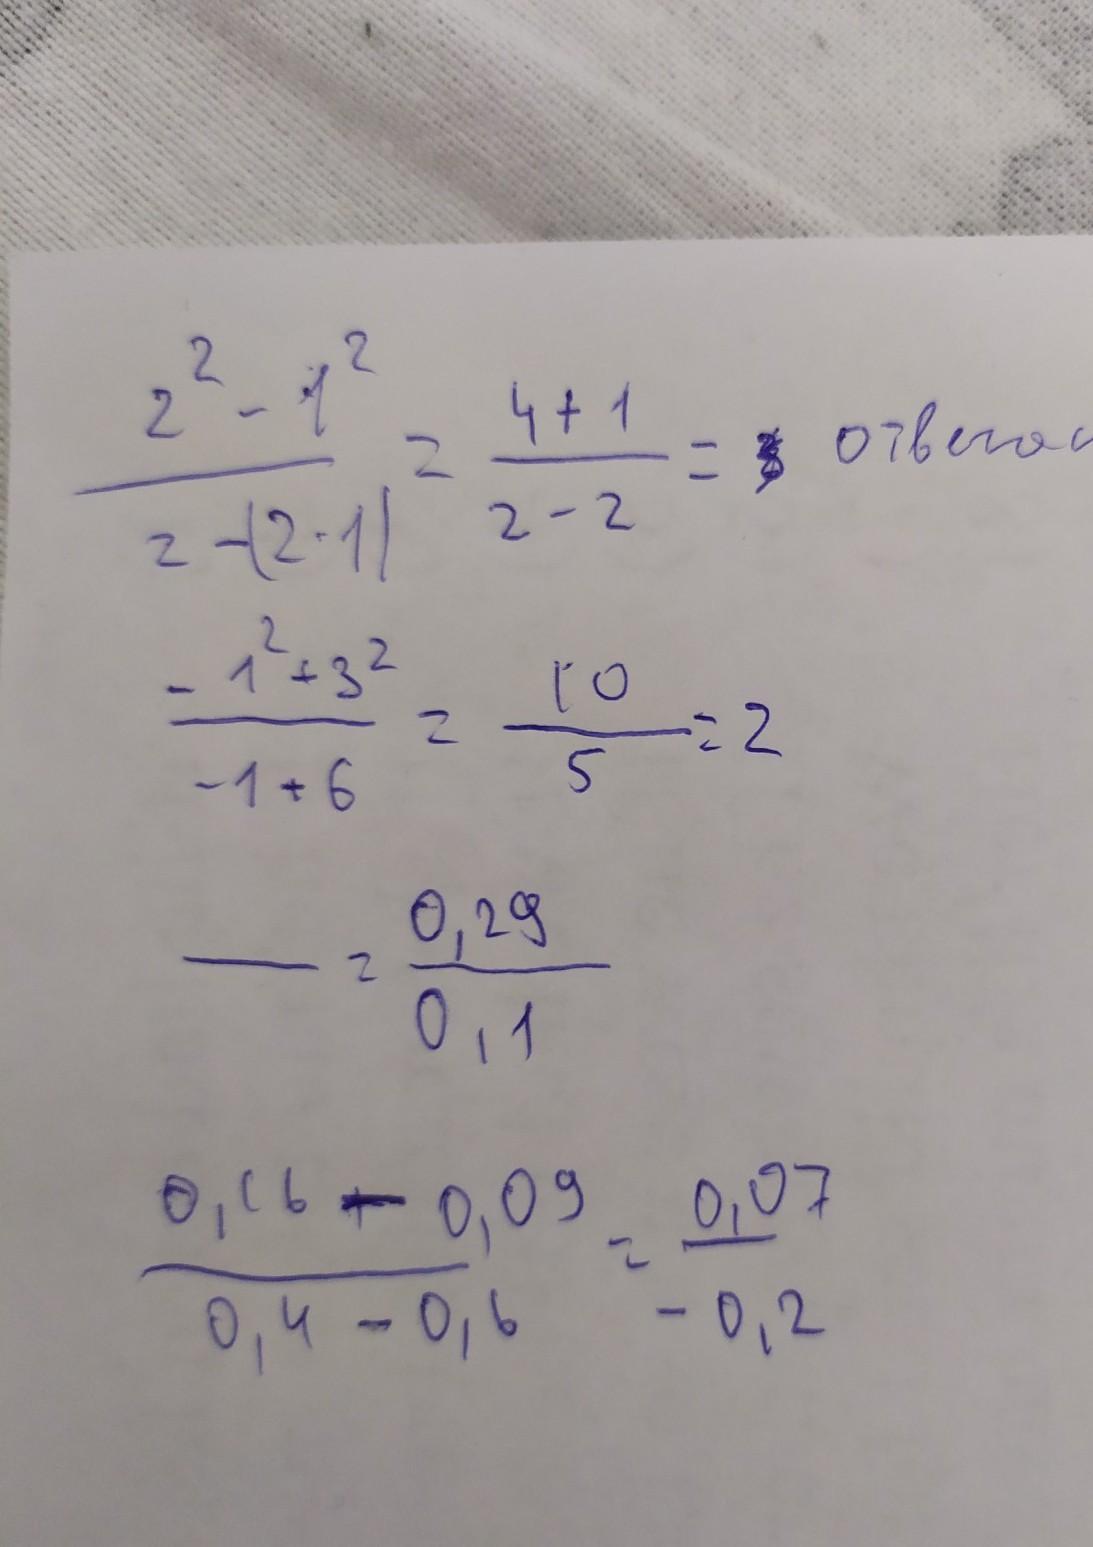 2² - 1² / 2 - (2·1) = 4 + 1 / 2 - 2 =
- 1² + 3² / -1 + 6 = 10 / 5 = 2
— = 0,29 / 0,1
0,16 - 0,09 / 0,4 - 0,6 = 0,07 / - 0,2